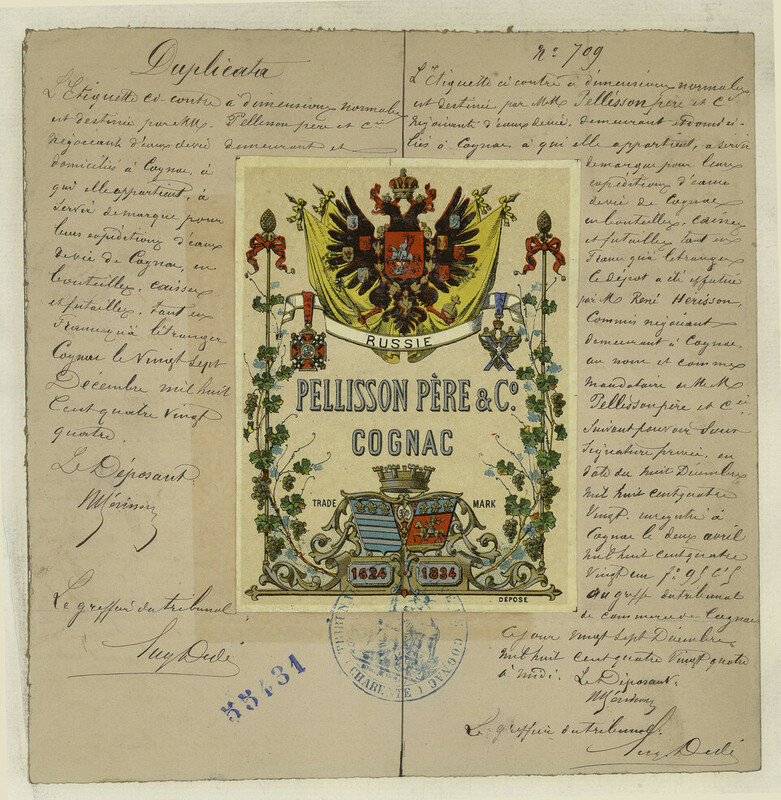 Duplicata
L'Etiquette ci contre a dimensions normales
est destinée par MM. Pellisson père et Cie
négociants d'eaux de vie demeurant et
domiciliés à Cognac, à
qui elle appartient, à
servir de marque pour
leurs expéditions d'eaux
de vie de Cognac, en
bouteilles, caisses
et futailles, tant en
France qu'à l'étranger
Cognac le Vingt Sept
Décembre mil huit
Cent quatre Vingt
quatre.
Le Déposant
Le greffier du tribunal
55431
No 709
L'Etiquette ci contre a dimensions normales
est destinée par MM. Pellisson père et Cie
négociants d'eaux de vie, demeurant et domici-
liés à Cognac à qui elle appartient, a servir
de marque pour leurs
expéditions d'eaux
de vie de Cognac
en bouteilles, caisses
et futailles tant en
France qu'à l'étranger
le dépot a été effectué
par M. René Herisson,
Commis négociant
demeurant à Cognac
au nom et comme
mandataire de MM
Pellisson père et Cie
Suivant pouvoir sous
Signature privée, en
date du huit Décembre
mil huit cent quatre
Vingt, enregistré à
Cognac le deux avril
mil huit cent quatre
Vingt un fo 95
au greffe du tribunal
de commerce de Cognac
ce jour vingt sept Décembre
mil huit cent quatre Vingt quatre
à midi. Le Déposant.
Le greffier du tribunal.
RUSSIE
PELLISSON PÈRE & Co.
COGNAC
TRADE MARK
1624 1834
DÉPOSÉ
COGNAC
(CHARENTE)